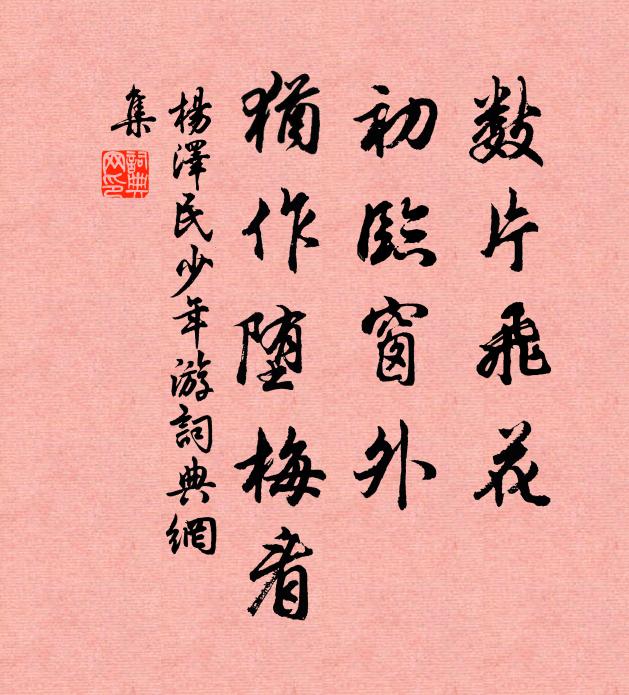 數片飛花
初臨窗外
猶作堕梅看
楊澤民少年游詞典網
集
詞典
网印